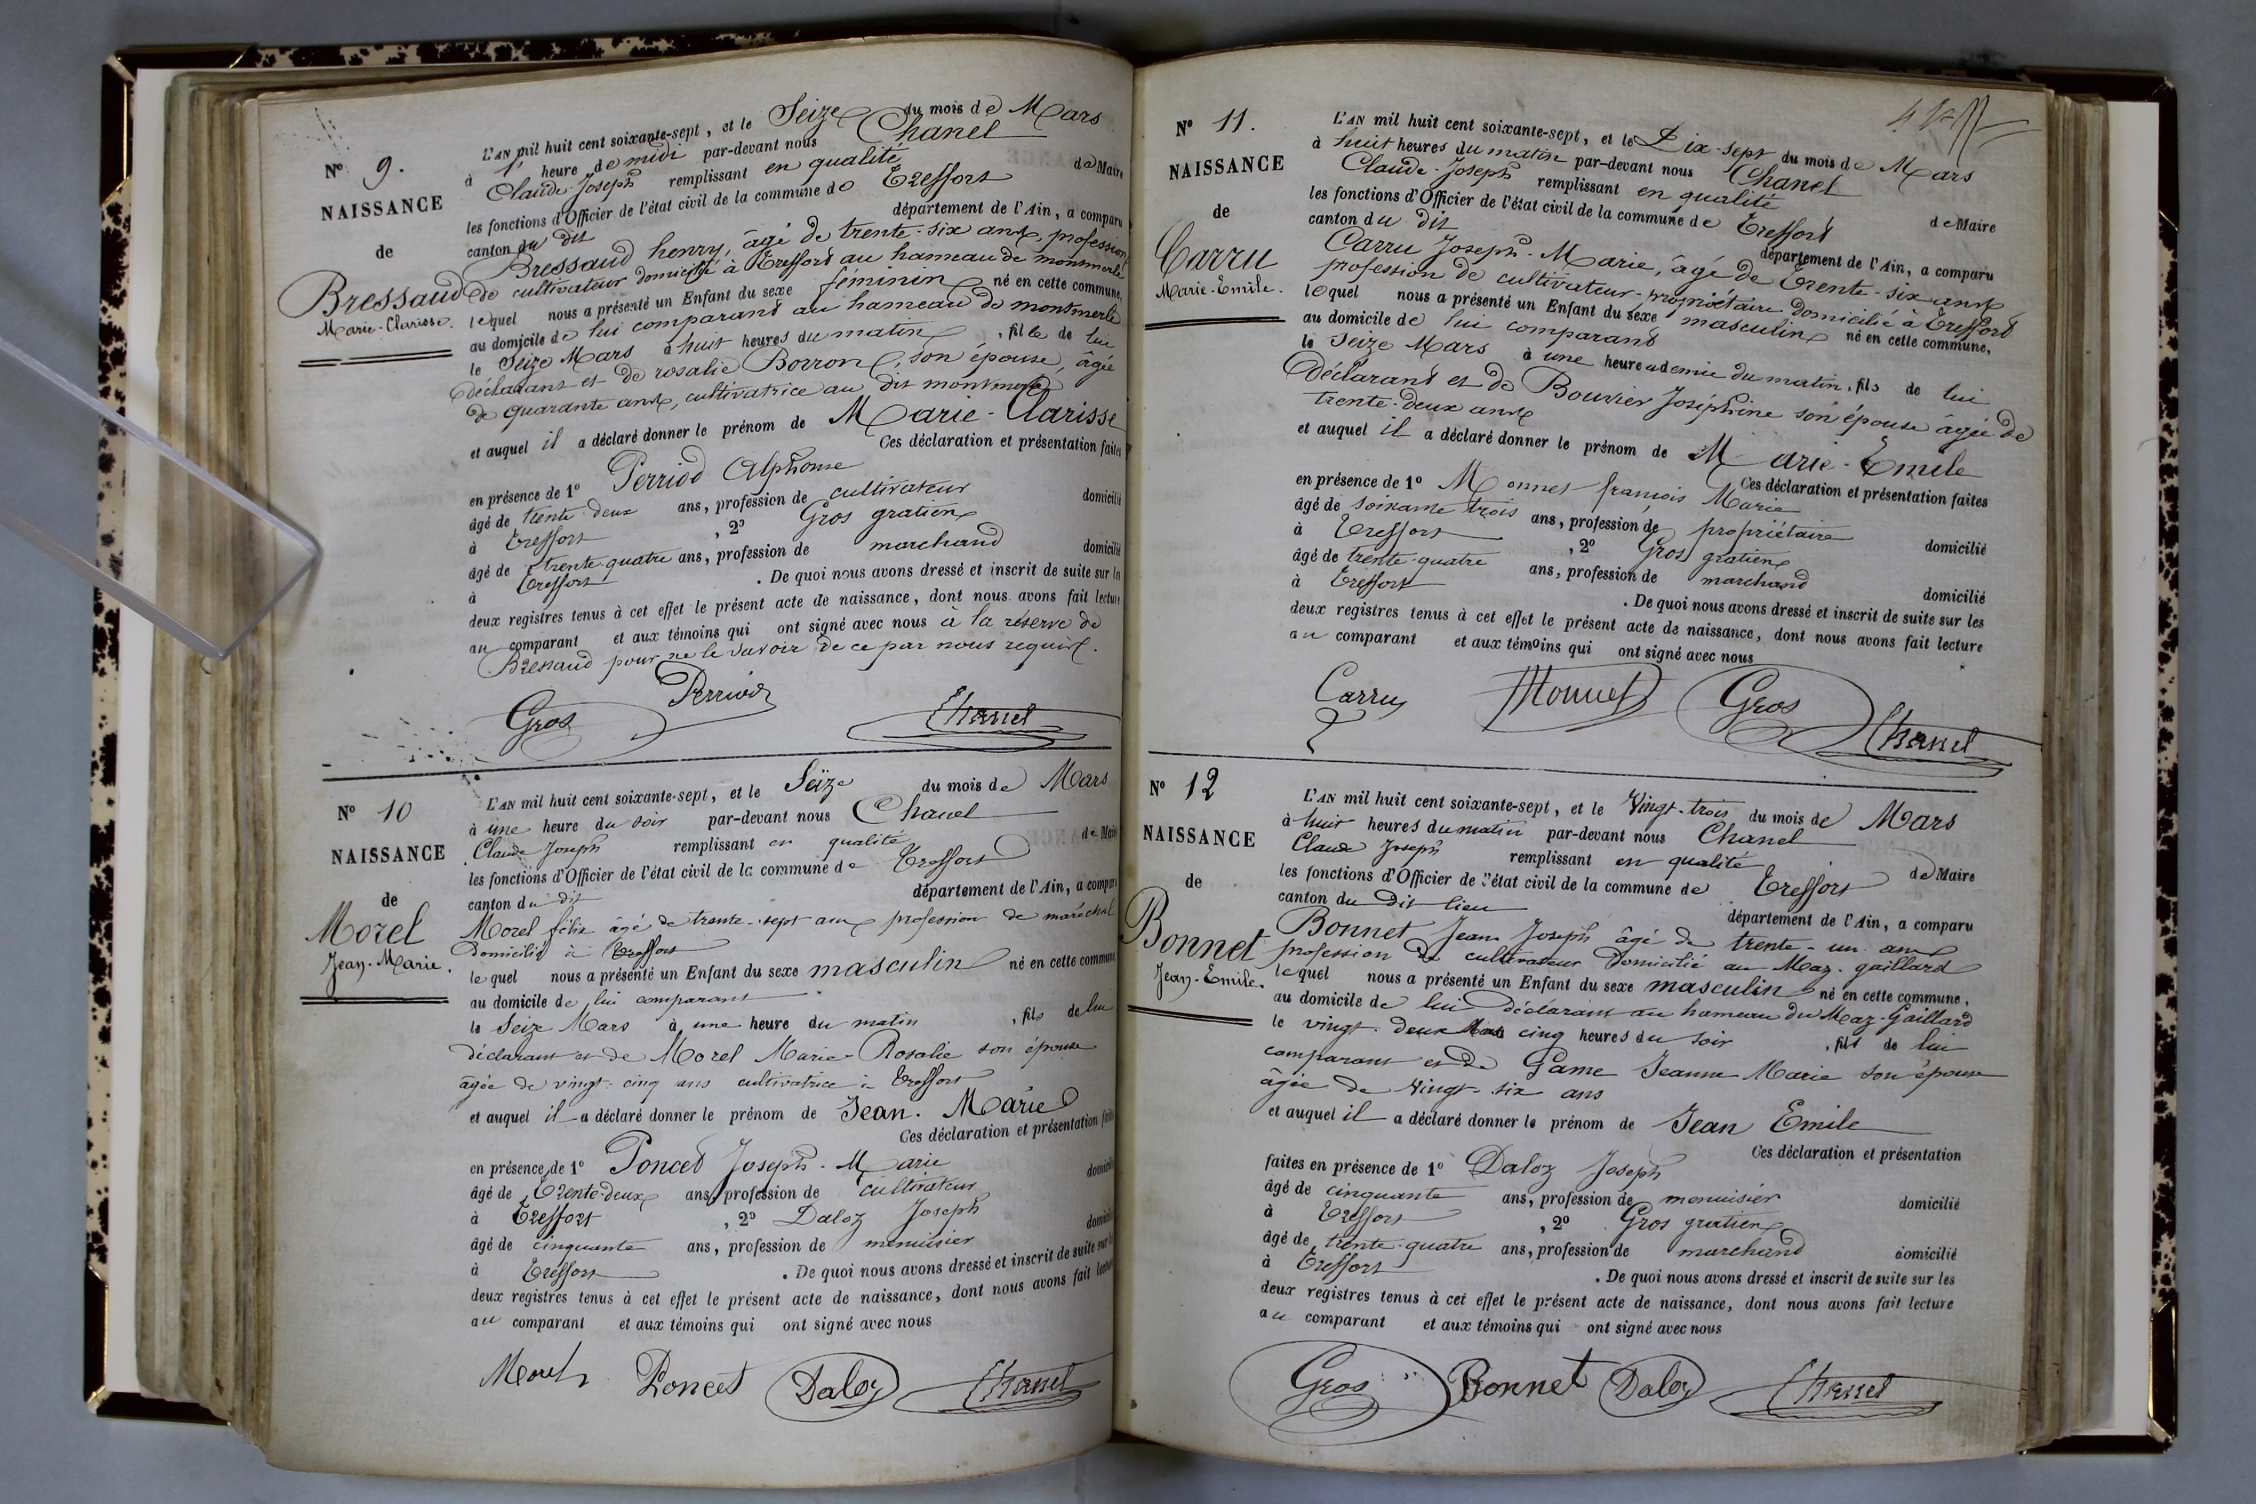 N° 9.
NAISSANCE
de
Bressaud
Marie-Clarisse.
L'AN mil huit cent soixante-sept, et le Seize du mois de Mars
à 1 heure de midi par-devant nous Chanel
Claude-Joseph remplissant en qualité de Maire
les fonctions d'Officier de l'état civil de la commune de Treffort
canton du dit département de l'Ain, a comparu
Bressaud henry, âgé de trente-six ans, profession
de cultivateur domicilié à Treffort au hameau de montmerle
lequel nous a présenté un Enfant du sexe féminin né en cette commune,
au domicile de lui comparant au hameau de montmerle
le Seize Mars à huit heures du matin, fille de lui
déclarant et de rosalie Borron, son épouse, âgée
de quarante ans, cultivatrice au dit montmerle
et auquel il a déclaré donner le prénom de Marie-Clarisse
Ces déclaration et présentation faites
en présence de 1° Perriod Alphonse
âgé de trente-deux ans, profession de cultivateur domicilié
à Treffort, 2° Gros gratien
âgé de trente-quatre ans, profession de marchand domicilié
à Treffort. De quoi nous avons dressé et inscrit de suite sur les
deux registres tenus à cet effet le présent acte de naissance, dont nous avons fait lecture
au comparant et aux témoins qui ont signé avec nous à la réserve de
Bressaud pour ne le savoir de ce par nous requis.
Perriod
Gros Chanel
N° 10
NAISSANCE
de
Morel
Jean-Marie.
L'AN mil huit cent soixante-sept, et le Seize du mois de Mars
à une heure du soir par-devant nous Chanel
Claude Joseph remplissant en qualité de Maire
les fonctions d'Officier de l'état civil de la commune de Treffort
canton du dit département de l'Ain, a comparu
Morel félix âgé de trente-sept ans profession de maréchal
domicilié à Treffort
lequel nous a présenté un Enfant du sexe masculin né en cette commune
au domicile de lui comparant
le Seize Mars à une heure du matin, fils de lui
déclarant et de Morel Marie-Rosalie son épouse
âgée de vingt-cinq ans cultivatrice à Treffort
et auquel il a déclaré donner le prénom de Jean-Marie
Ces déclaration et présentation faites
en présence de 1° Poncet Joseph-Marie
âgé de Trente-deux ans, profession de cultivateur domicilié
à Treffort, 2° Daloz Joseph
âgé de cinquante ans, profession de menuisier domicilié
à Treffort. De quoi nous avons dressé et inscrit de suite sur les
deux registres tenus à cet effet le présent acte de naissance, dont nous avons fait lecture
au comparant et aux témoins qui ont signé avec nous
Morel Poncet Daloz Chanel
N° 11.
NAISSANCE
de
Carru
Marie-Emile.
L'AN mil huit cent soixante-sept, et le Dix-sept du mois de Mars
à huit heures du matin par-devant nous Chanel
Claude-Joseph remplissant en qualité de Maire
les fonctions d'Officier de l'état civil de la commune de Treffort
canton du dit département de l'Ain, a comparu
Carru Joseph-Marie, âgé de Trente-six ans
profession de cultivateur-propriétaire domicilié à Treffort
lequel nous a présenté un Enfant du sexe masculin né en cette commune,
au domicile de lui comparant
le Seize Mars à une heure et demie du matin, fils de lui
Déclarant et de Bouvier Joséphine son épouse âgée de
trente-deux ans
et auquel il a déclaré donner le prénom de Marie-Emile
Ces déclaration et présentation faites
en présence de 1° Monnet françois Marie
âgé de soixante trois ans, profession de propriétaire domicilié
à Treffort, 2° Gros gratien
âgé de trente-quatre ans, profession de marchand domicilié
à Treffort. De quoi nous avons dressé et inscrit de suite sur les
deux registres tenus à cet effet le présent acte de naissance, dont nous avons fait lecture
au comparant et aux témoins qui ont signé avec nous
Carru Monnet Gros Chanel
N° 12
NAISSANCE
de
Bonnet
Jean-Emile.
L'AN mil huit cent soixante-sept, et le Vingt-trois du mois de Mars
à huit heures du matin par-devant nous Chanel
Claude Joseph remplissant en qualité de Maire
les fonctions d'Officier de l'état civil de la commune de Treffort
canton du dit lieu département de l'Ain, a comparu
Bonnet Jean Joseph âgé de trente-un ans
profession de cultivateur domicilié au Maz-gaillard
lequel nous a présenté un Enfant du sexe masculin né en cette commune,
au domicile de lui déclarant au hameau du Maz-Gaillard
le vingt-deux Mars cinq heures du soir, fils de lui
comparant et de Game Jeanne Marie son épouse
âgée de Vingt-six ans
et auquel il a déclaré donner le prénom de Jean Emile
Ces déclaration et présentation
faites en présence de 1° Daloz Joseph
âgé de cinquante ans, profession de menuisier domicilié
à Treffort, 2° Gros gratien
âgé de trente-quatre ans, profession de marchand domicilié
à Treffort. De quoi nous avons dressé et inscrit de suite sur les
deux registres tenus à cet effet le présent acte de naissance, dont nous avons fait lecture
au comparant et aux témoins qui ont signé avec nous
Gros Bonnet Daloz Chanel